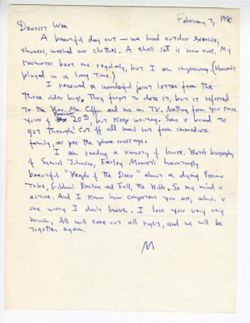 February 7, 1980
Dearest Wee
A beautiful day out — we had outdoor exercise,
showers, washed our clothes. A chess set is now ours. My
roommates beat me regularly, but I am improving. (Haven't
played in a long time.)
I received a wonderful joint letter from the
three older boys. They forgot to date it, but it referred
to the Rev. Mr. Coffin and me on TV. Nothing from you since
your 20th but keep writing. Some is bound to
get through! Cut off all mail but from immediate
family, as per the phone message.
I am reading a variety of books. Bate's biography
of Samuel Johnson, Farley Mowat's hauntingly
beautiful "People of the Deer" about a dying Eskimo
Tribe, Gibbons' Decline and Fall, the Bible. So my mind is
active. And I know how competent you are, which is
one worry I don't have. I love you very very
much. All will come out all right, and we will be
together again.
M